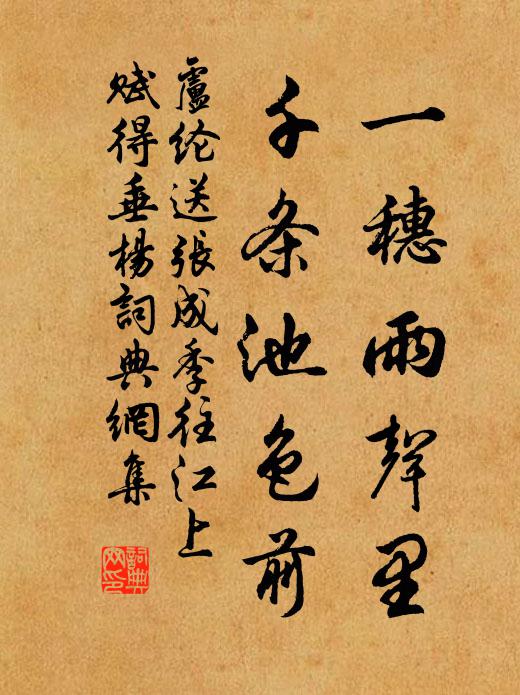 一穗雨聲里
千条池色前
盧纶送張成季往江上
賦得垂楊詞典網集
詞典
网印